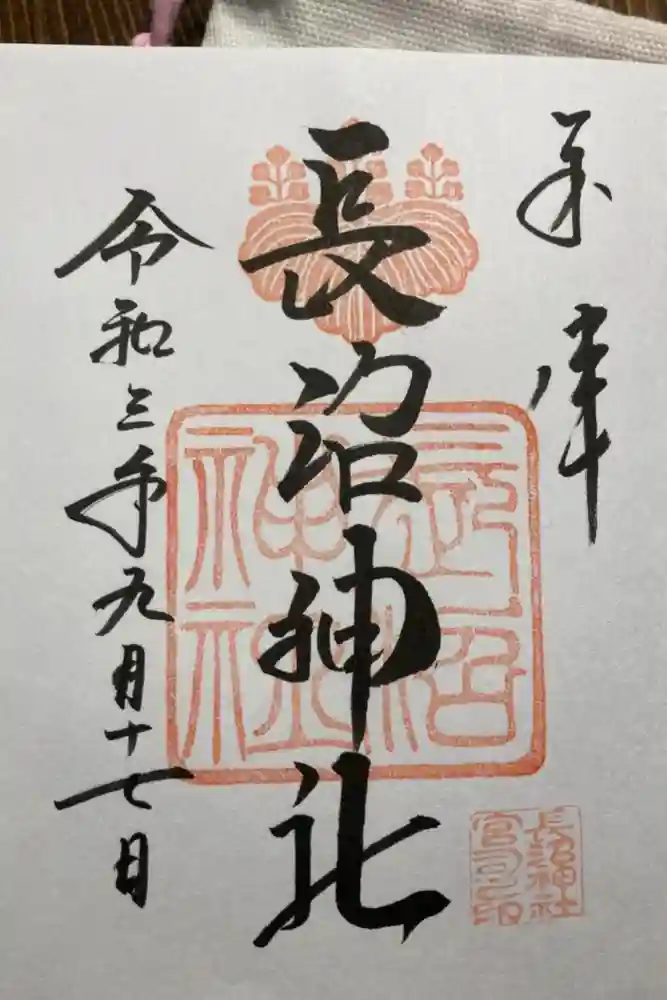 奉拝
長沼神社
令和三年九月十七日
長沼神社
長沼神社